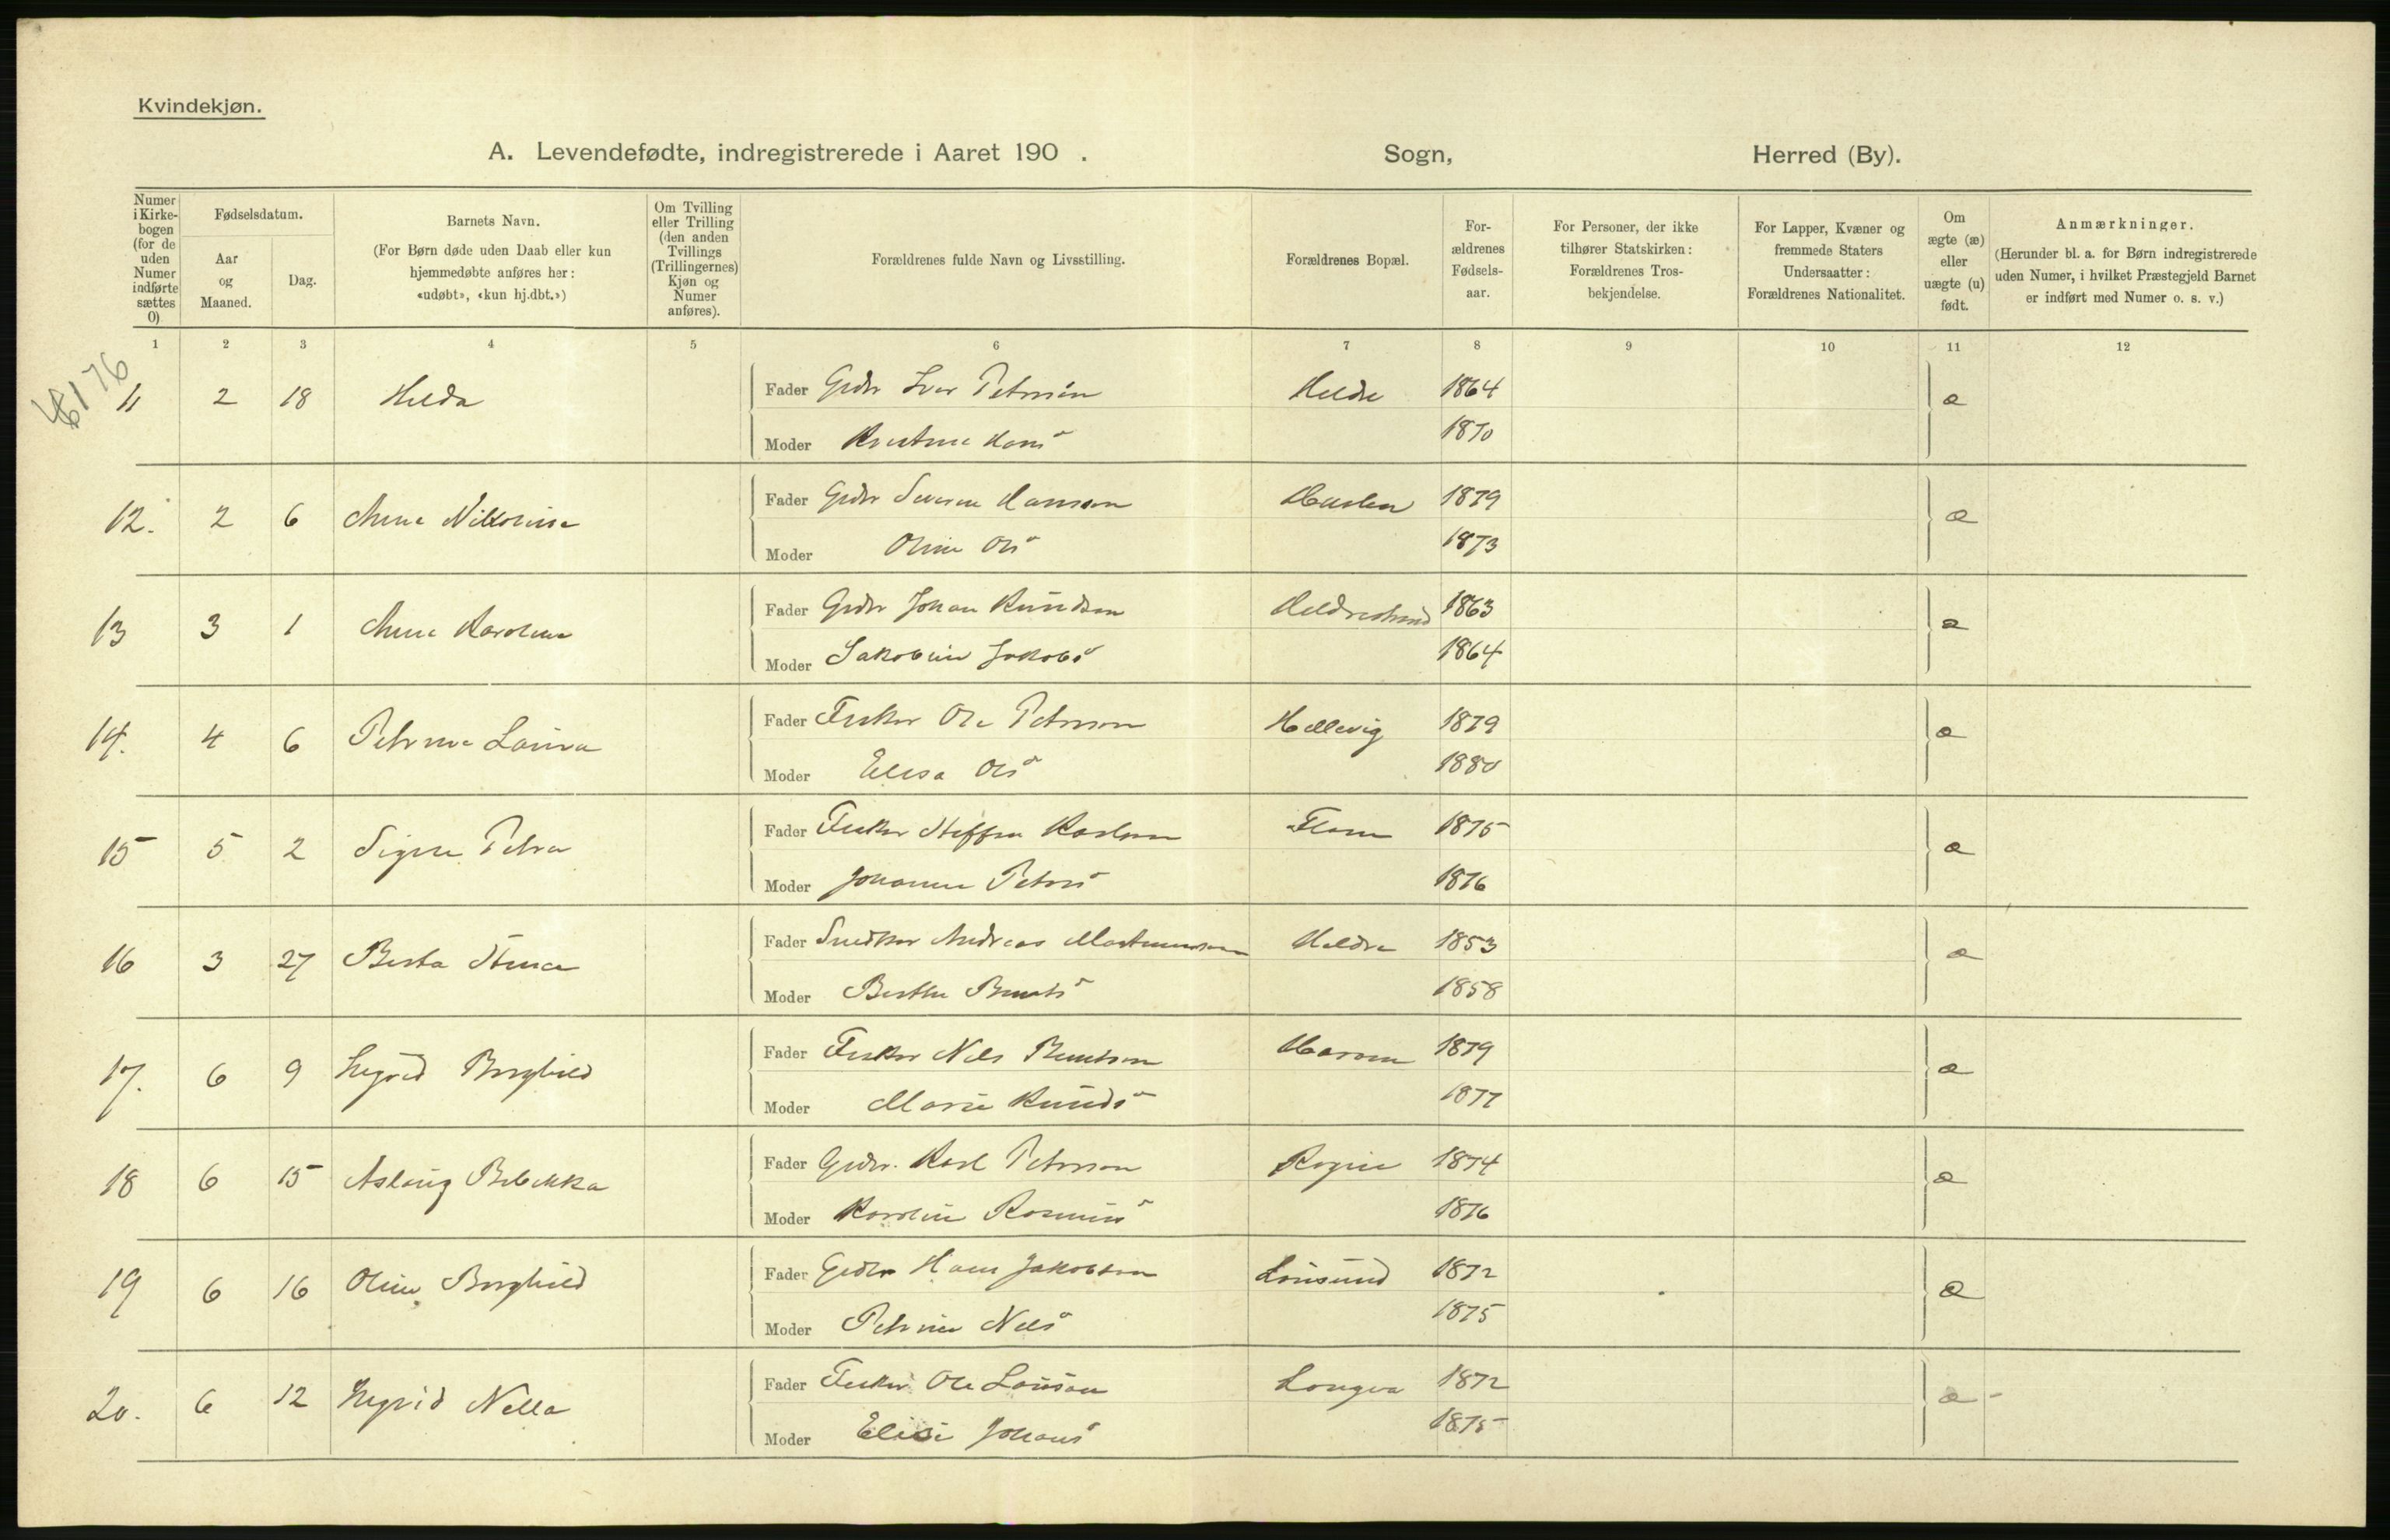 Kvindekjøn.
A. Levendefødte, indregistrerede i Aaret 190 . Sogn, Herred (By).
Numer i Kirkebogen (for de uden Numer indførte sættes 0)
Fødselsdatum.
Aar og Maaned.
Dag.
Barnets Navn.
(For Børn døde uden Daab eller kun hjemmedøbte anføres her: «udøbt», «kun hj.dbt.»)
Om Tvilling eller Trilling (den anden Tvillings (Trillingernes) Kjøn og Numer anføres).
Forældrenes fulde Navn og Livsstilling.
Forældrenes Bopæl.
Forældrenes Fødselsaar.
For Personer, der ikke tilhører Statskirken: Forældrenes Trosbekjendelse.
For Lapper, Kvæner og fremmede Staters Undersaatter: Forældrenes Nationalitet.
Om ægte (æ) eller uægte (u) født.
Anmærkninger.
(Herunder bl. a. for Børn indregistrerede uden Numer, i hvilket Præstegjeld Barnet er indført med Numer o. s. v.)
1 2 3 4 5 6 7 8 9 10 11 12
11 2 18 Hilda Fader Gdbr Iver Petersen Hildre 1864 æ
Moder Kristine Hans 1870
12. 2 6 Anna Nikoline Fader Gdbr Severin Hanssen 1879 æ
Moder Oline Ols 1873
13 3 1 Anna Karoline Fader Gdbr Johan Knudsen Hildrestrand 1863 æ
Moder Jakobine Jakobs 1864
14. 4 6 Petrine Laura Fader Fisker Ole Peterson Hellevig 1879 æ
Moder Elisa Ols 1880
15 5 2 Signe Petra Fader Fisker Steffen Karlsen Flem 1875 æ
Moder Johanne Peters 1876
16 3 27 Berta Stina Fader Snedker Andreas Martinussen Hildre 1853 æ
Moder Berthe Bernts 1858
17. 6 9 Ingrid Borghild Fader Fisker Nils Berntsen Haram 1879 æ
Moder Marie Knuds 1877
18 6 15 Aslaug Rebekka Fader Gdbr. Karl Peterson Rogne 1874 æ
Moder Karoline Rasmus 1876
19 6 16 Oline Borghild Fader Gdbr Hans Jakobsen Lausund 1872 æ
Moder Petrine Nils 1875
20. 6 12 Ingrid Nella Fader Fisker Ole Larsson Longva 1872 æ
Moder Elise Johans 1875